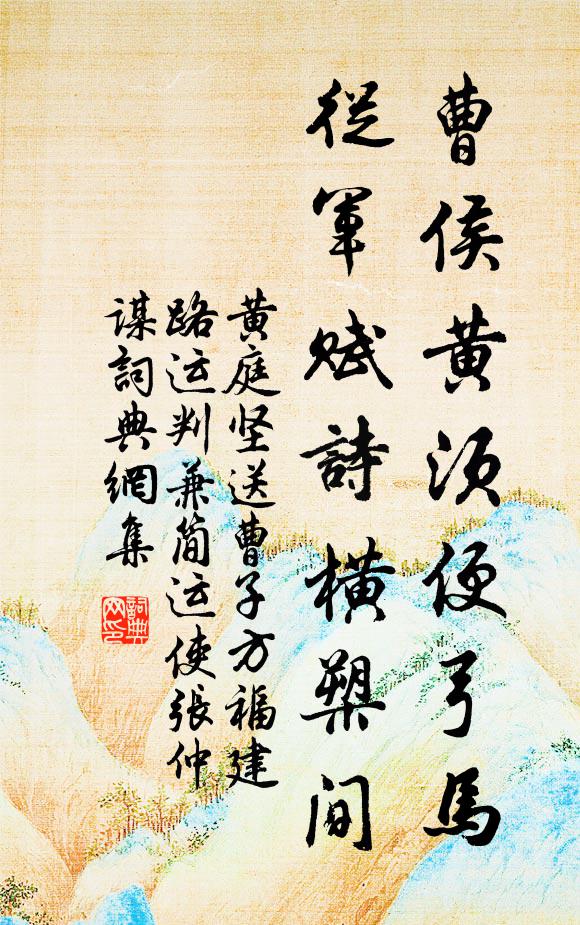 曹侯黄须便弓馬
從軍赋詩橫槊間
黄庭坚送曹子方福建
路运判兼简运使張仲
谋詞典網集
詞典
网印